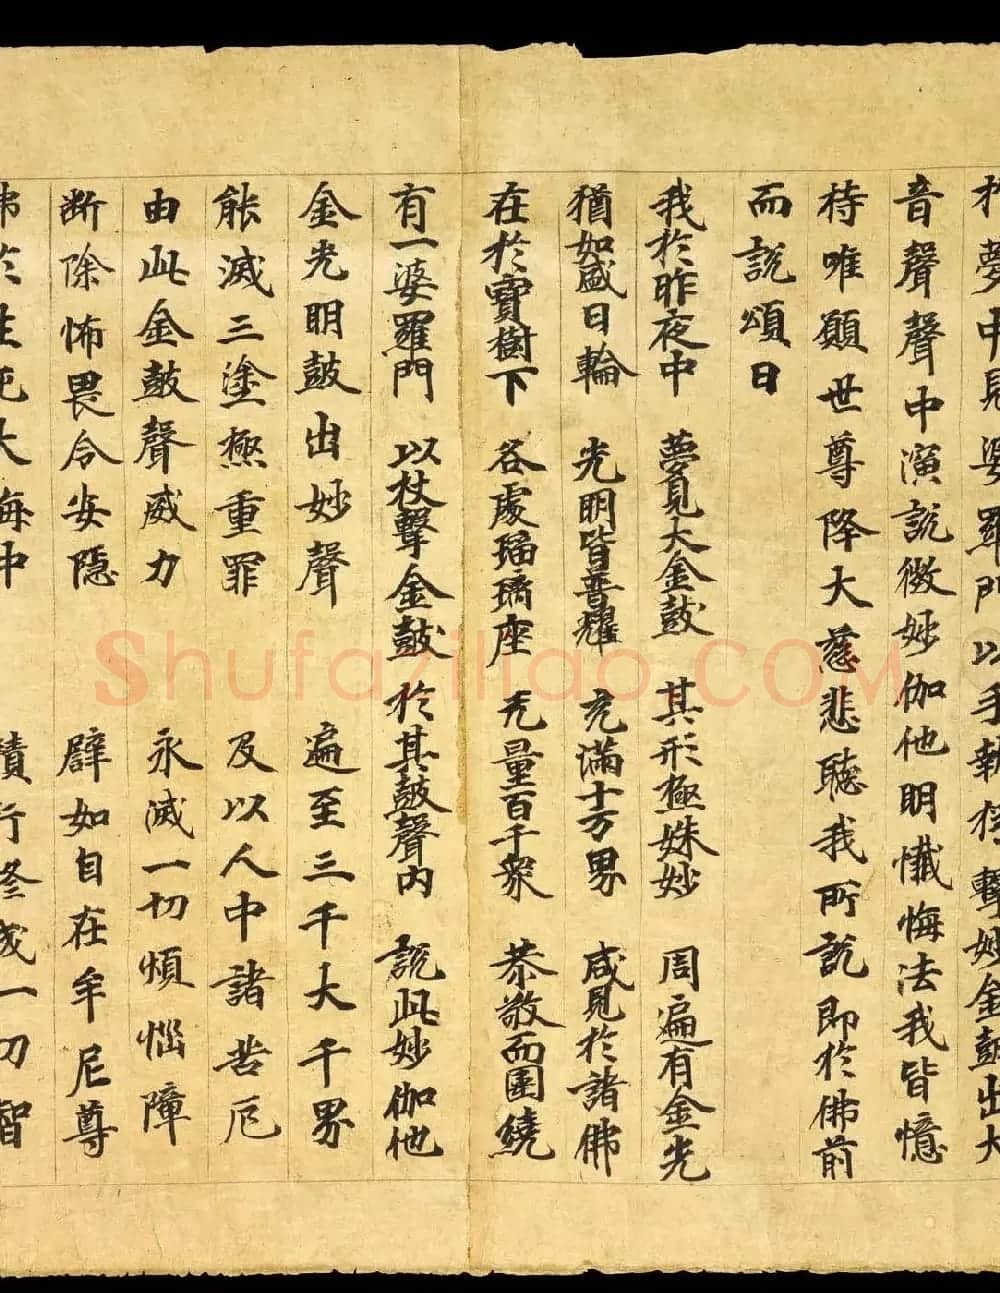 於夢中見婆羅門以手執桴擊妙金鼓出大
音聲聲中演說微妙伽他明懺悔法我皆憶
持唯願世尊降大慈悲聽我所說即於佛前
而說頌曰
我於昨夜中 夢見大金鼓 其形極姝妙 周遍有金光
猶如盛日輪 光明皆普耀 充滿十方界 咸見於諸佛
在於寶樹下 各處瑠璃座 无量百千衆 恭敬而圍繞
有一婆羅門 以杖擊金鼓 於其鼓聲內 說此妙伽他
金光明鼓出妙聲 遍至三千大千界
能滅三塗極重罪 及以人中諸苦厄
由此金鼓聲威力 永滅一切煩惱障
断除怖畏令安隱 譬如自在牟尼尊
佛於生死大海中 積行修成一切智
Shufaziliao.COM